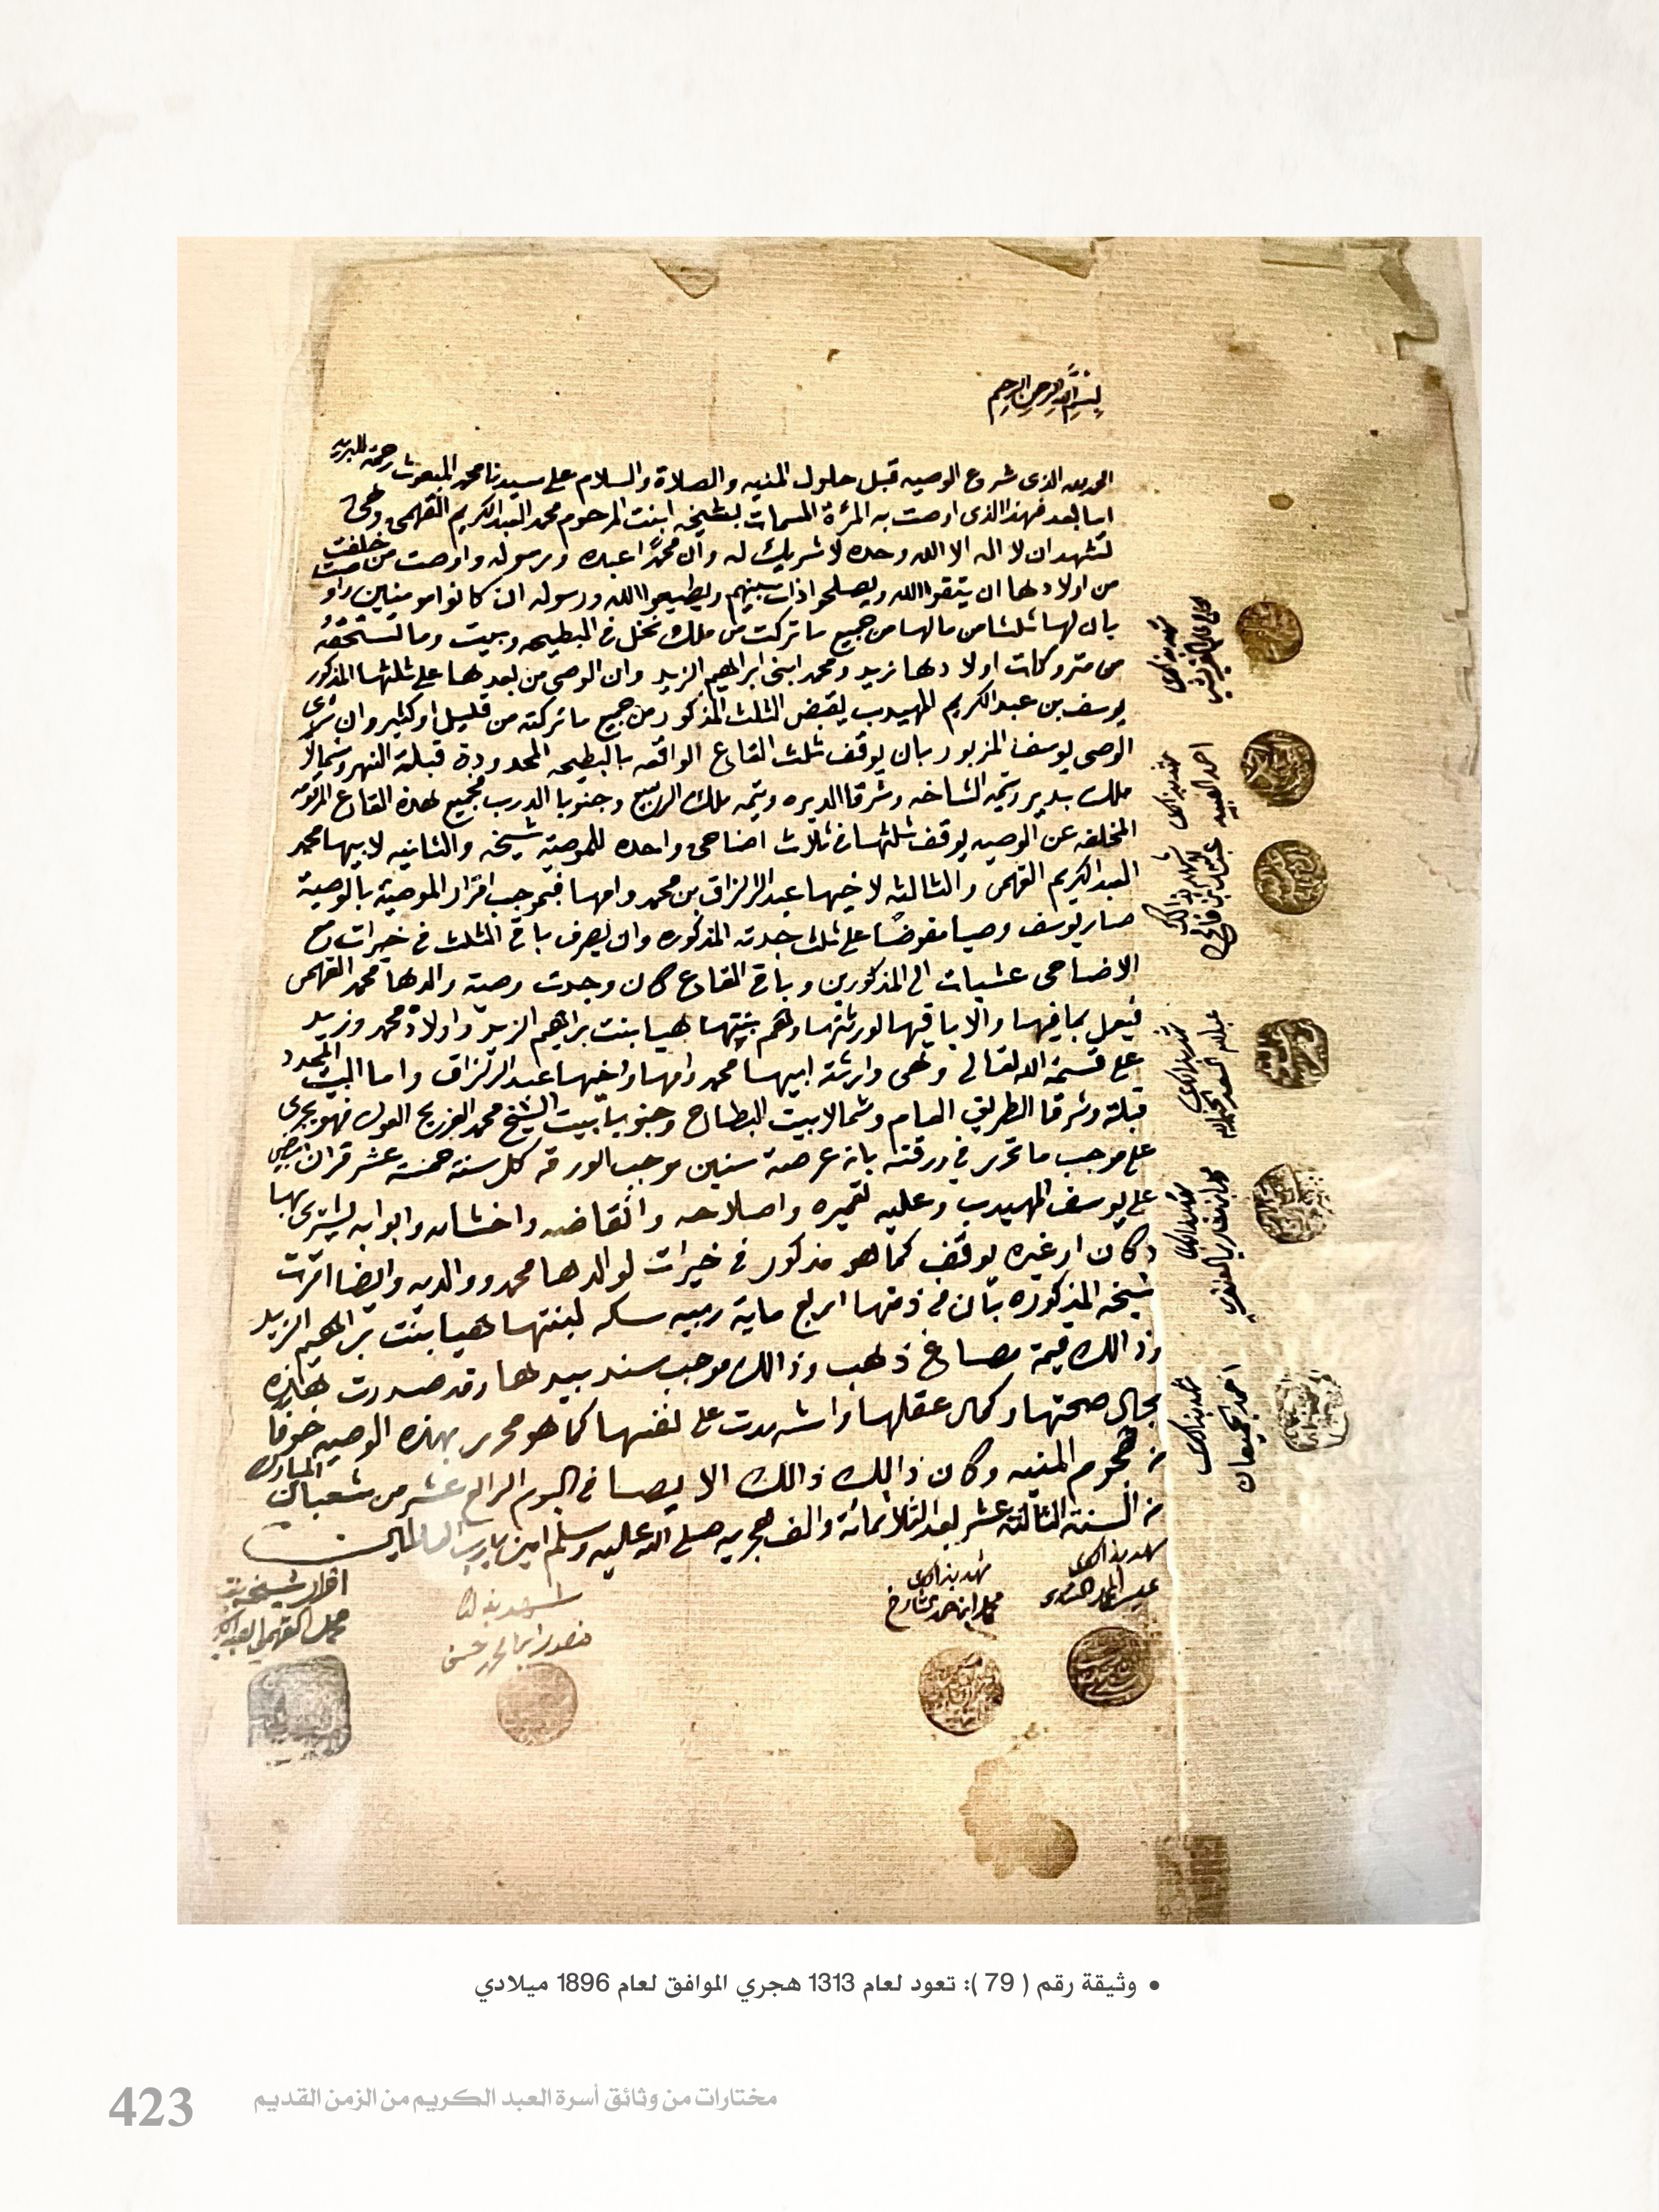 بسم الله الرحمن الرحيم
الحمد لله الذى شروع الوصيه قبل حلول المنيه والصلاة والسلام على سيدنا محمد المبعوث رحمة للبريه
اما بعد فهذا الذى اوصت به المرئة المسمات بشيخه ابنت المرحوم محمد العبدالكريم القهمى وهى
تشهد ان لا اله الا الله وحده لا شريك له وان محمدًا عبده ورسوله واوصت من خلفت
من اولادها ان يتقوا الله ويصلحوا ذات بينهم ويطيعوا الله ورسوله ان كانوا مومنين
بان لها ثلثا من مالها من جميع ما تركت من ملك نخل فى البطيحه وبيت وما تستحقه
من متروكات اولادها زيد ومحمد ابنى ابراهيم الزيد وان الوصي من بعدها على ثلثها المذكور
يوسف بن عبدالكريم المهيدب يقبض الثلث المذكور من جميع ما تركته من قليل او كثير وان
الوصى يوسف المزبور بان يوقف ثلث القارع الواقعه بالبطيحه المحدودة قبلة النهر وشمالًا
ملك بدير وتيمة الشاخه وشرقا الديره وتيمه ملك الربيع وجنوبا الدرب فجميع هذه القارع المرقومه
المخلفه عن الوصيه يوقف ثلثها فى ثلاث اضاحى واحده للموصية شيخه والثانيه لابيها محمد
العبدالكريم القهمى والثالثه لاخيها عبدالرزاق بن محمد وامها فبموجب اقرار الموصية بالوصية
صار يوسف وصيا مفوضًا على ثلث جدته المذكوره وان يصرف باقى الثلث فى خيرات مع
الاضاحى عشيات الى المذكورين وباقى القارع كان وجدت وصية والدها محمد القهمى
فيعمل بما فيها والا باقيها لورثتها وهم بنتها هيا بنت براهيم الزيد واولاد محمد وزيد
على قسمة الله تعالى وهى وارثة ابيها محمد وامها واخيها عبدالرزاق واما البيت المحدود
قبلة وشرقا الطريق العام وشمالا بيت البطاح وجنوبا بيت الشيخ محمد الفريح العون فهو يجرى
على موجب ما تحرر في ورقته بانه عرصة سنين موجب الورقه كل سنة خمسة عشر قران
على يوسف المهيدب وعليه تعميره واصلاحه وانقاضه واخشابه وابوابه يشترى بها
دكان او غيره يوقف كما هو مذكور فى خيرات لوالدها محمد ووالديه وايضا اقرت
شيخه المذكوره بان فى ذمتها اربع ماية ربيه سكه لبنتها هيا بنت براهيم الزيد
وذالك قيمة مصاغ ذهب وذالك موجب سند بيدها وقد صدرت هذه
بحال صحتها وكمال عقلها واشهدت على نفسها كما هو محرر بهذه الوصيه خوفا
من هجوم المنيه وكان ذالك ذالك الايصا فى اليوم الرابع عشر من شعبان المبارك
من السنة الثالثة عشر بعد الثلاثمائة والف هجريه صلى الله عليه وسلم امين يارب العالمين
شهد بذالك
شهد بذالك
محمد ابن حمد
شهد بذالك
منصور
اقرار شيخه بنت
محمد القهمى العبدالكريم
شهد بذالك
شهد بذالك
احمد العبيد
شهد بذالك
شهد بذالك
عبدالله
شهد بذالك
شهد بذالك
احمد الجميعان
• وثيقة رقم ( 79 ): تعود لعام 1313 هجري الموافق لعام 1896 ميلادي
مختارات من وثائق أسرة العبد الكريم من الزمن القديم
423